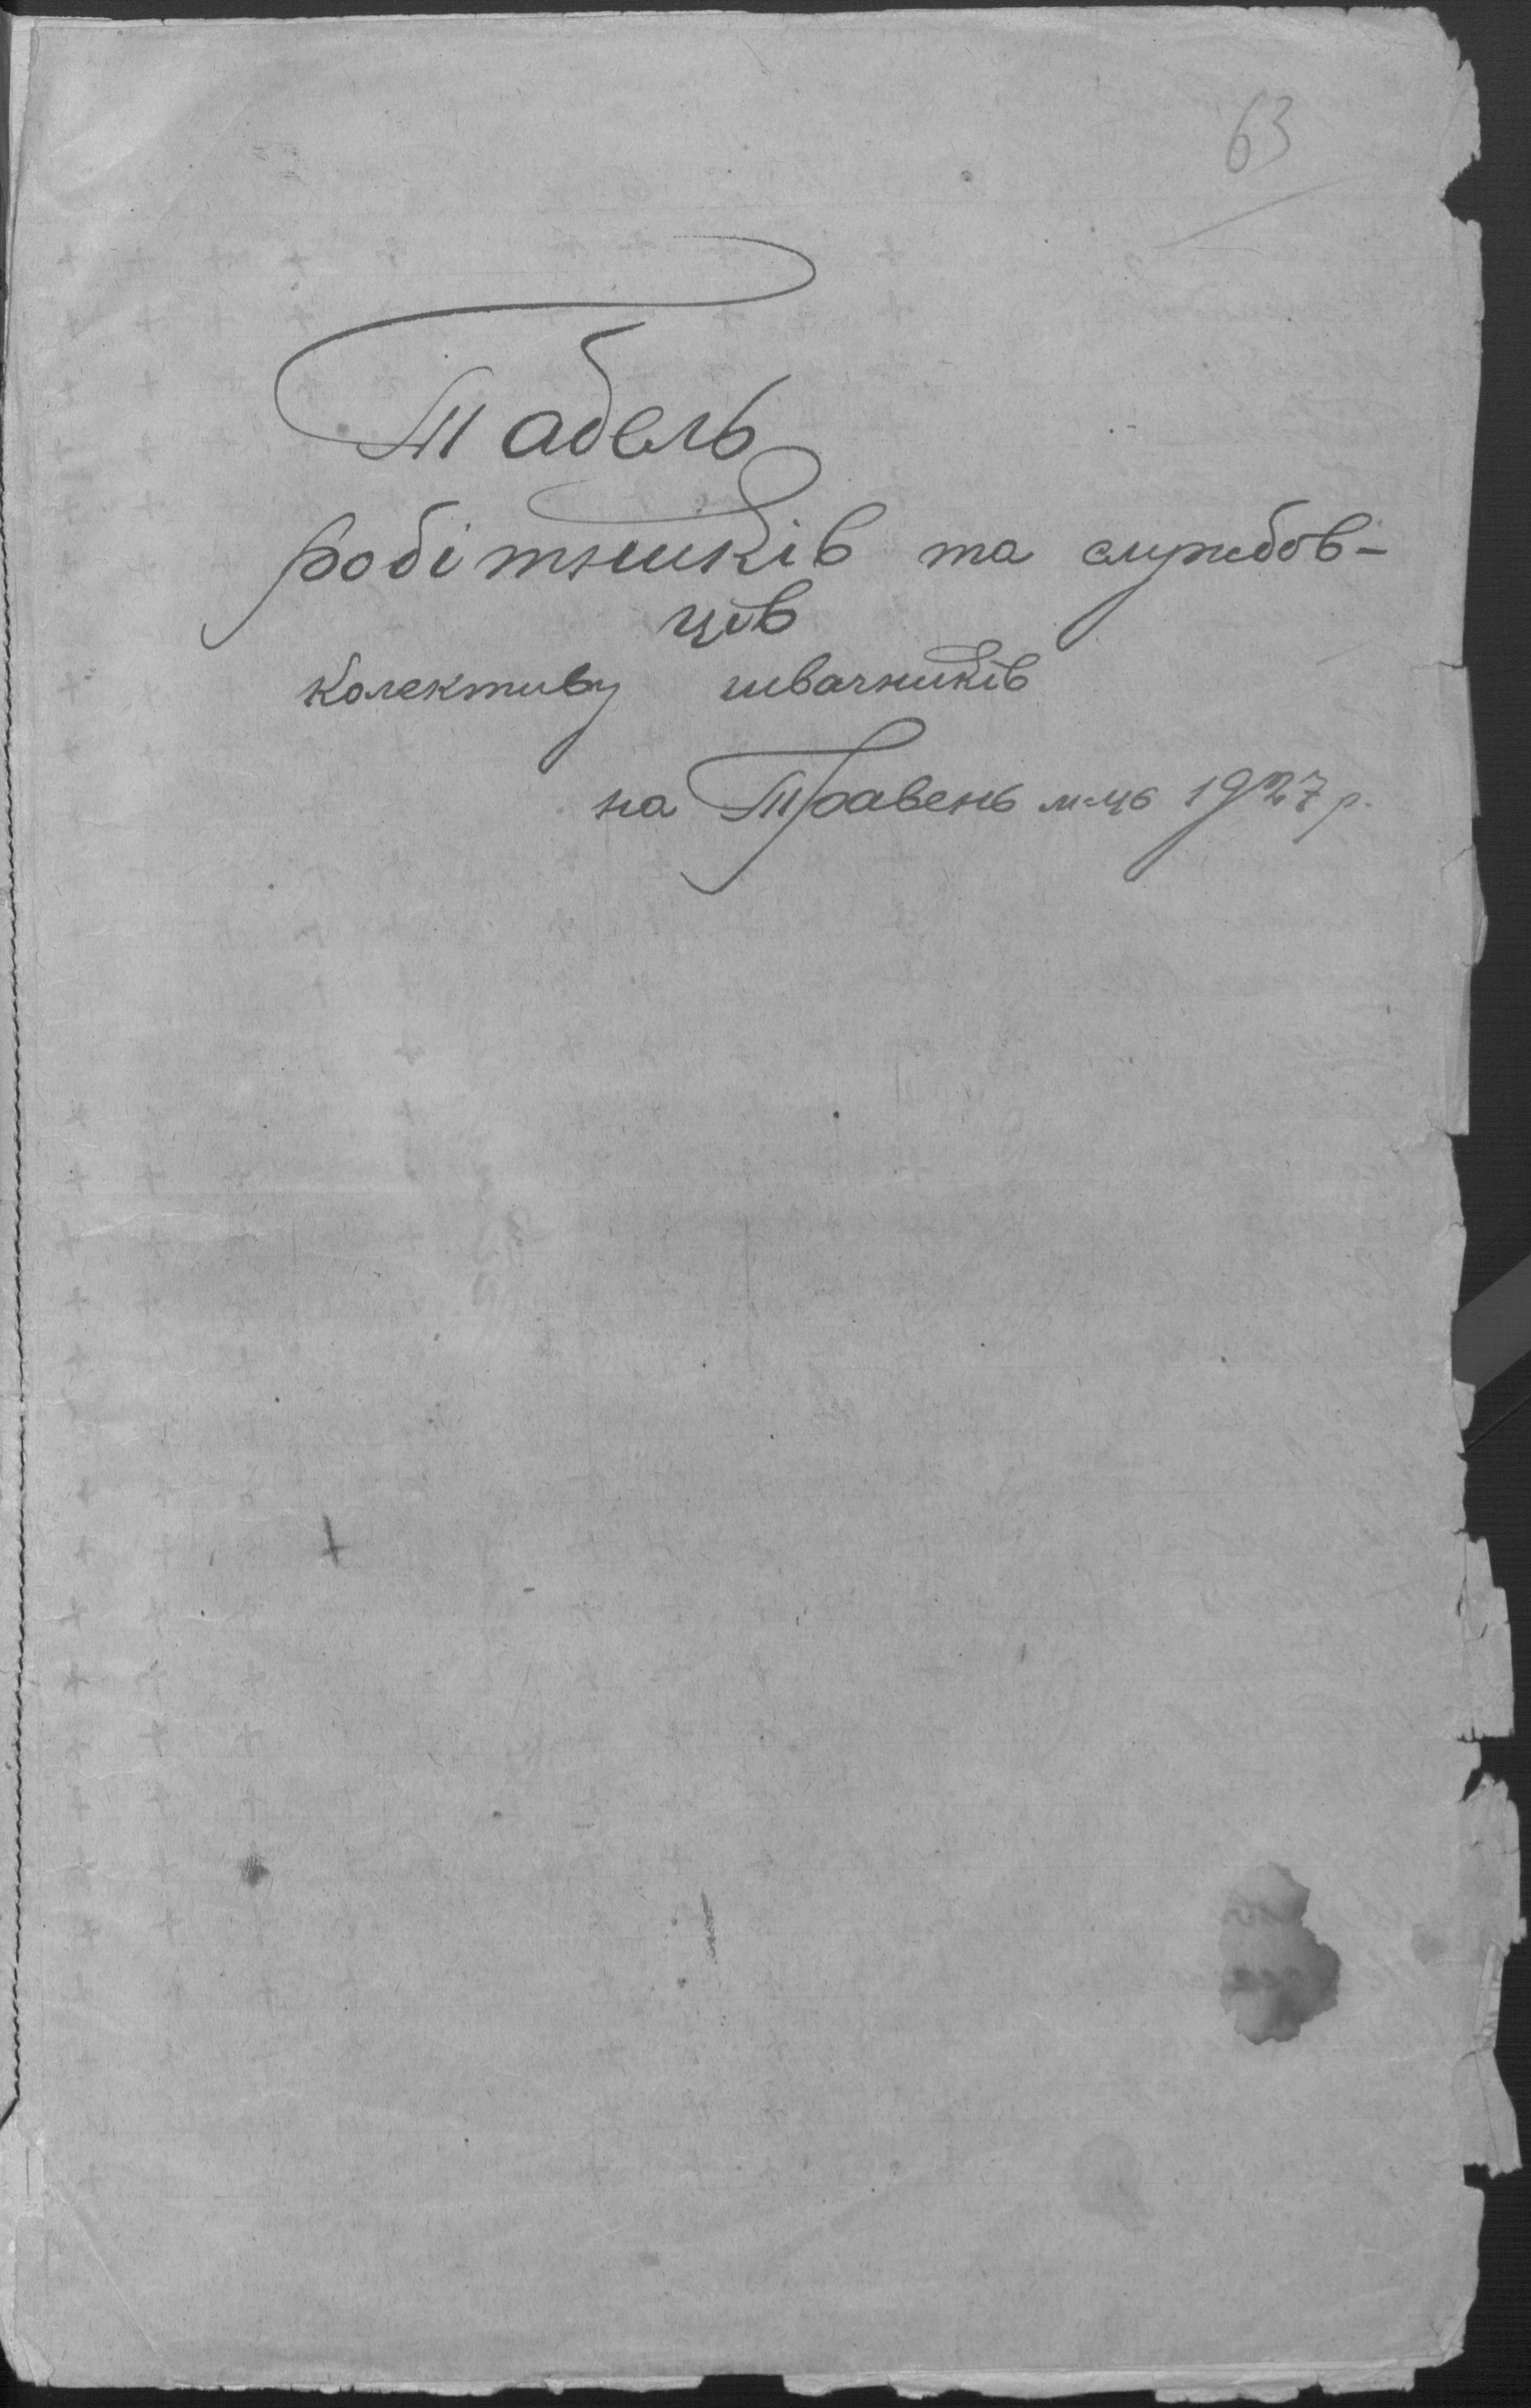 63
Табель
робітників та службов-
ців
колективу швачників
на Травень м-ць 1927 р.